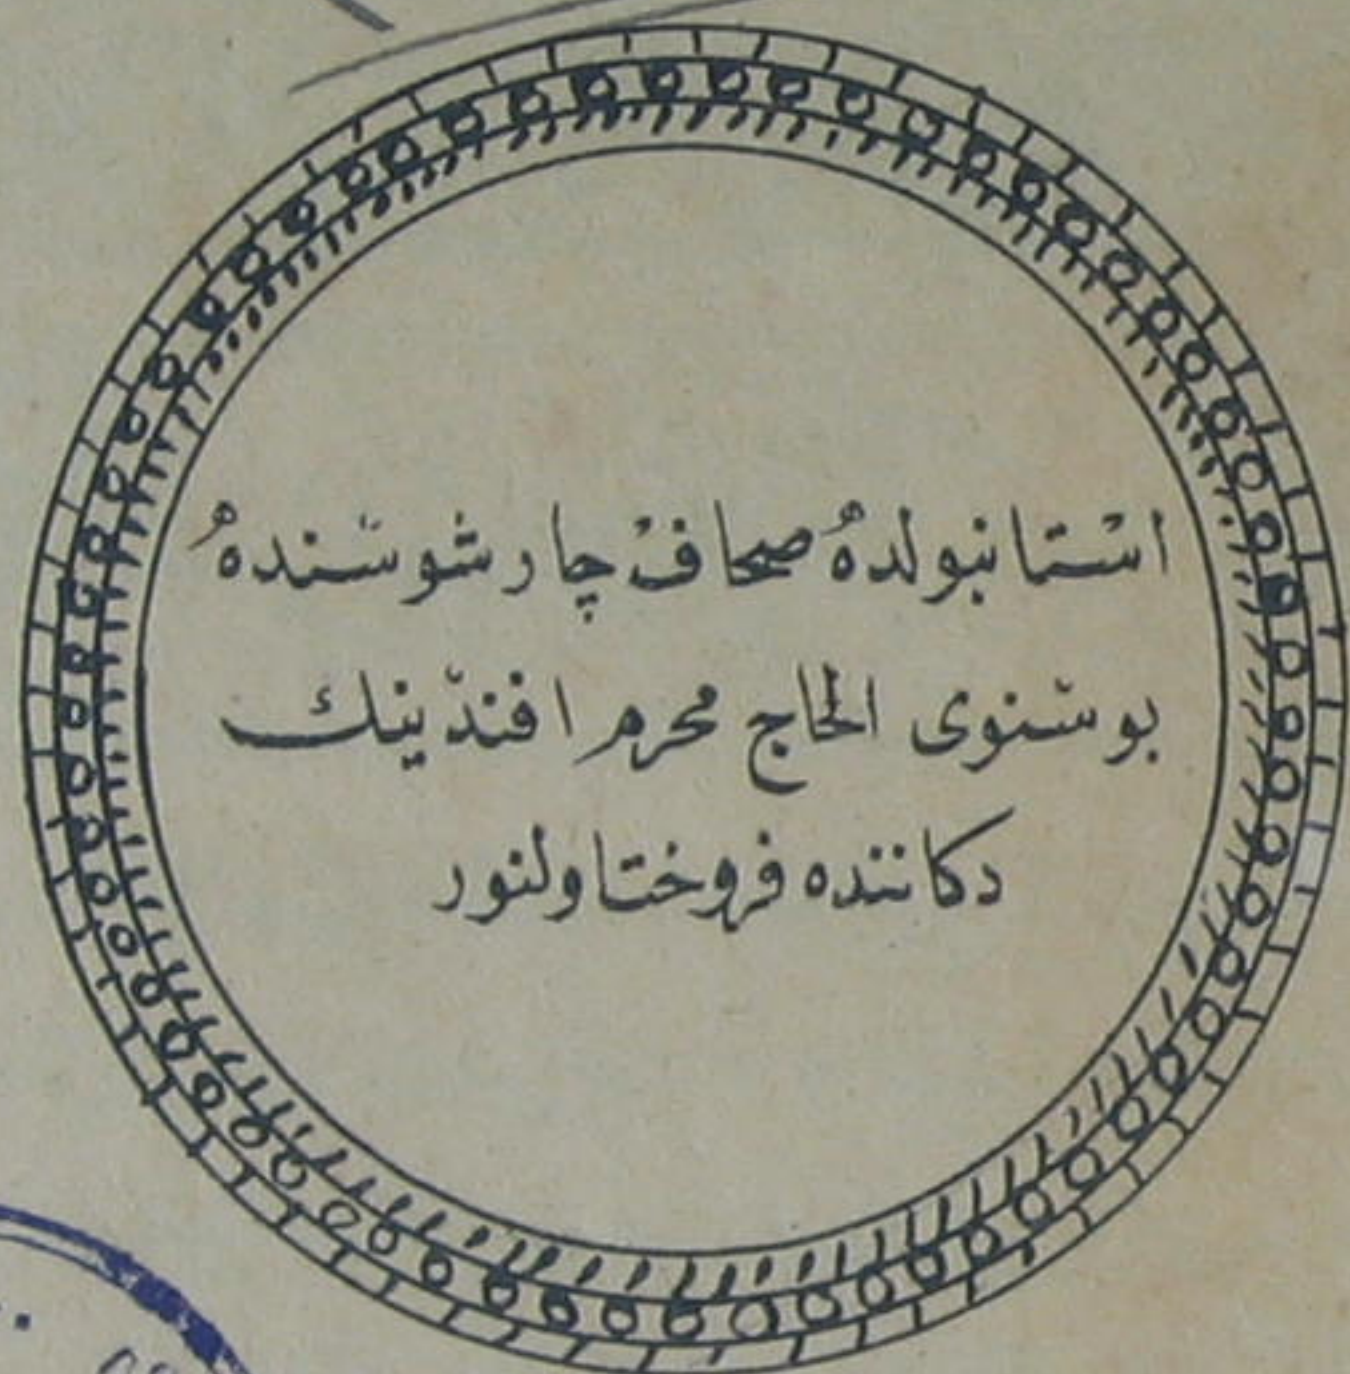 استانبولده صحاف چارشوسنده
بوسنوی الحاج محرم افندینك
دكاننده فروخت اولنور